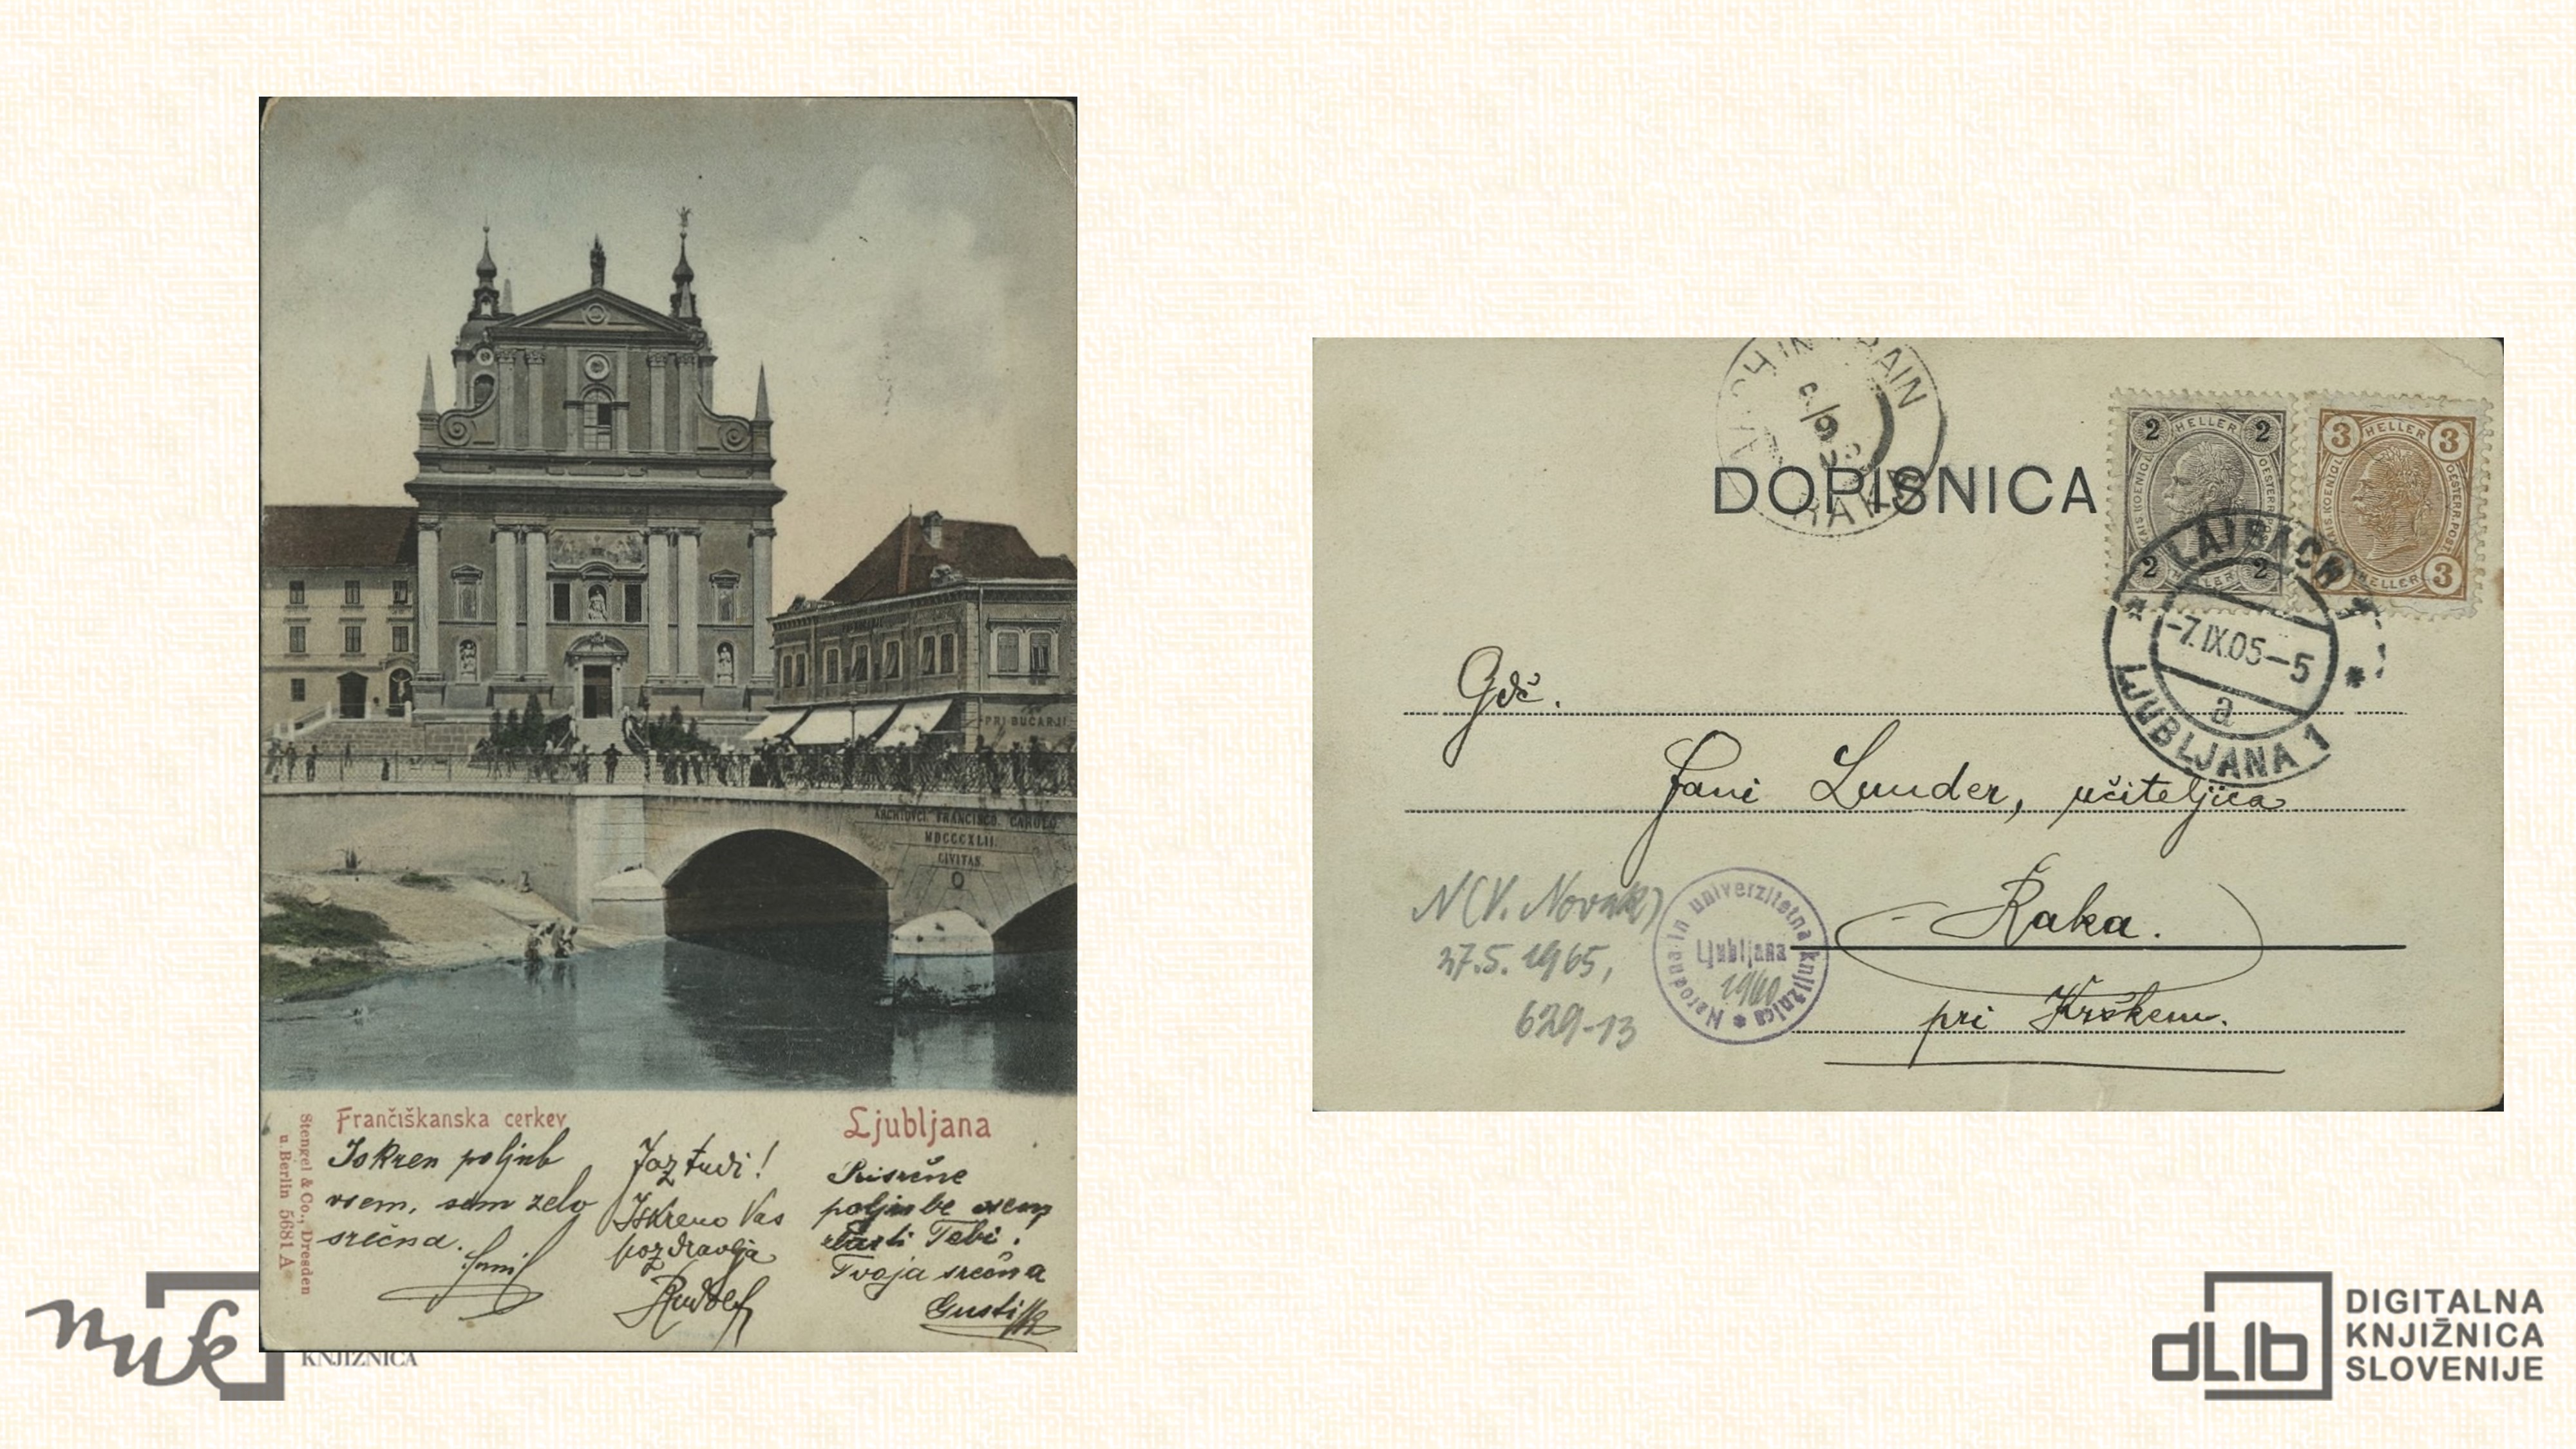 PRI BUČARJU
ARCHIDVCI. FRANCISCO. CAROLO.
MDCCCXLII.
CIVITAS.
Frančiškanska cerkev
Ljubljana
Stengel & Co., Dresden
u. Berlin 5681 A
Iskren poljub
vsem, sem zelo
srečna.
Jaz tudi!
Iskreno Vas
pozdravlja
Rudolf
Prisrčne
poljube vsem
zlasti Tebi.
Tvoja srečna
Gusti
nuk
KNJIŽNICA
DOPISNICA
2 HELLER 2
3 HELLER 3
2 HELLER 2
HELLER 3
LAIBACH
-7.IX.05-5
a
LJUBLJANA 1
Gdč.
Fani Lunder, učiteljica
Raka.
pri Krškem.
N(V. Novak)
27.5.1965,
629-13
Narodna in univerzitetna knjižnica
Ljubljana
1960
dLib
DIGITALNA
KNJIŽNICA
SLOVENIJE